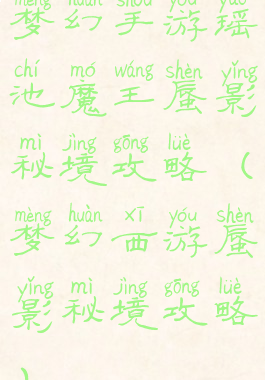 mèng huàn shǒu yóu yáo
梦幻手游瑶
chí mó wáng shèn yǐng
池魔王蜃影
mì jìng gōng lüè
秘境攻略（
mèng huàn xī yóu shèn
梦幻西游蜃
yǐng mì jìng gōng lüè
影秘境攻略
）